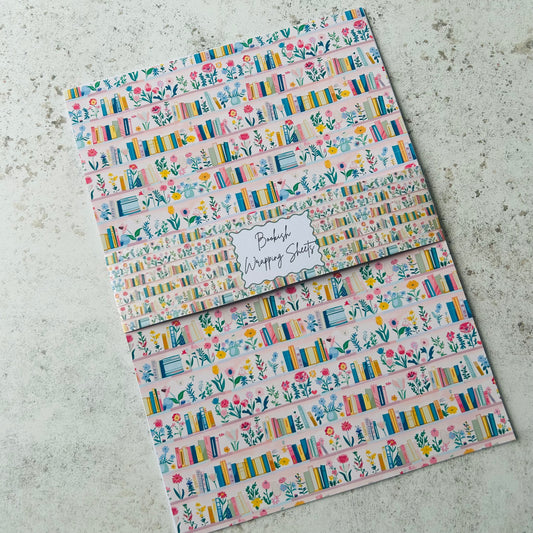 Bookish
Wrapping Sheets